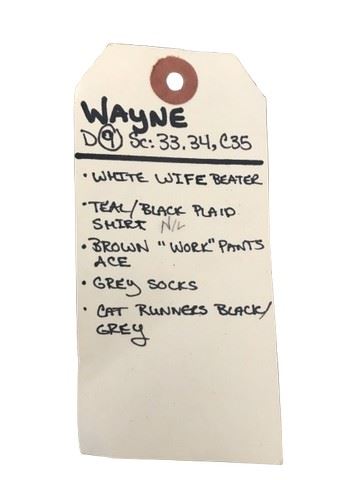 WAYNE
D 9 SC: 33, 34, C35
• WHITE WIFE BEATER
• TEAL/BLACK PLAID
SHIRT N/L
• BROWN "WORK" PANTS
ACE
• GREY SOCKS
• CAT RUNNERS BLACK/
GREY